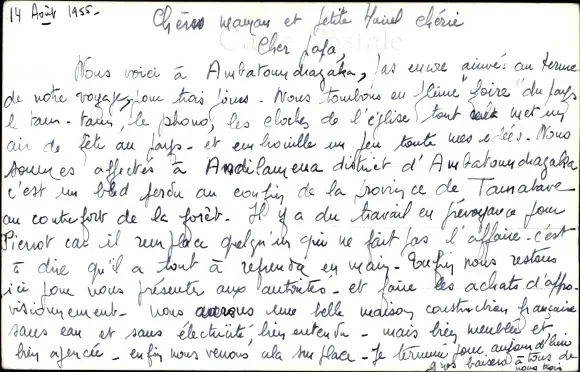 14 Août 1955-
Chères maman et petite Muriel chérie
Cher Papa
Carte Postale
Nous voici à Ambatoundrazaka, pas encore arrivé au terme
de notre voyage, pour trois jours. Nous tombons en pleine "foire" du pays
le tam-tam, le phono, les cloches de l'église tout cela met un
air de fête au pays- et embrouille un peu toute mes idées. Nous
sommes affectés à Andilamena district d'Ambatoundrazaka
c'est un bled perdu au confin de la province de Tamatave
au contrefort de la forêt. Il y a du travail en prévoyance pour
Pierrot car il remplace quelqu'un qui ne fait pas l'affaire. c'est
à dire qu'il a tout à reprendre en main. Enfin nous restons
ici pour nous présenter aux autorités- et faire les achats d'appro-
visionnement- nous aurons une belle maison construction française
sans eau et sans électricité, bien entendu- mais bien meublée et
bien agencée- enfin nous verrons cela sur place- Je termine pour aujourd'hui
nos baisers à tous de
nous trois